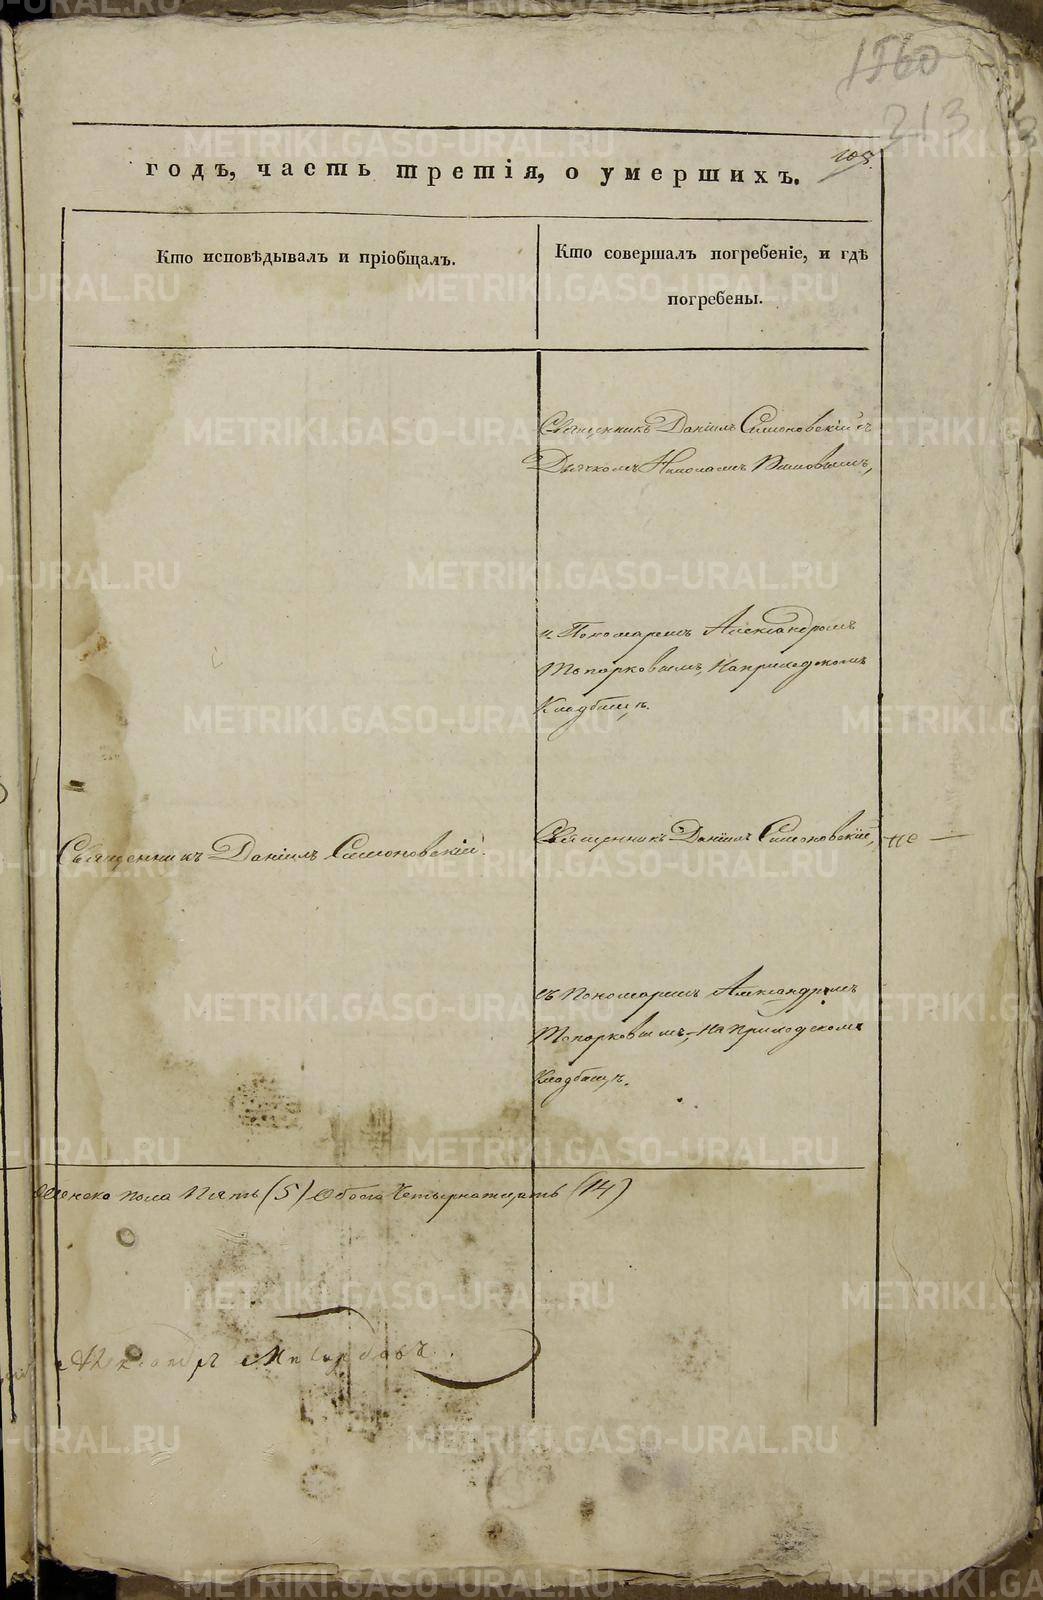 1560
213
105.
годъ, часть третія, о умершихъ.
Кто исповѣдывалъ и пріобщалъ.
Кто совершалъ погребеніе, и гдѣ
погребены.
Священникъ Даніилъ Симоновскій съ
Дьячкомъ Николаемъ
и Пономаремъ Александромъ
Топорковымъ, На приходскомъ
Кладбищѣ.
Священникъ Даніилъ Симоновскій.
Священникъ Даніилъ Симоновскій,
съ Пономаремъ Александромъ
Топорковымъ, на Приходскомъ
Кладбищѣ.
Женска пола Пять (5) Обоего Четырнатцать (14)
Александръ
METRIKI.GASO-URAL.RU